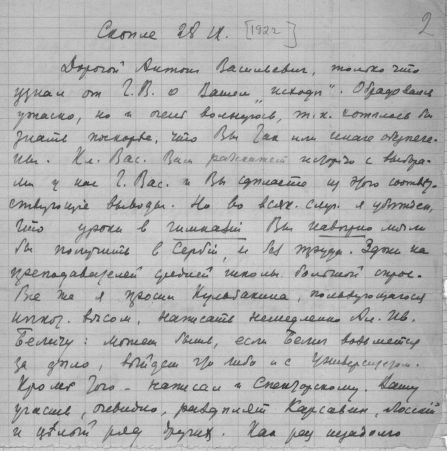 2
Скопле 28 IX. [1922]
Дорогой Антон Васильевич, только что
узнал от Г.В. о Вашем „исходе“. Обрадовался
ужасно, но и очень волнуюсь, т.к. хотелось бы
знать поскорее, что Вы так или иначе обеспече-
ны. Кл. Вас. Вам расскажет историю с выбора-
ми у нас Г. Вас. и Вы сделаете из этого соответ-
ствующие выводы. Но во всяк. случ. я убежден,
что уроки в гимназiи Вы наверно могли
бы получить в Сербiи, и без труда. Здесь на
преподавателей средней школы большой спрос.
Все же я просил Кульбакина, пользующагося
большим вѣсом, написать немедленно Ал. Ив.
Беличу: может быть, если Белич возьмется
за дѣло, выйдет что либо и с Университетом.
Кромѣ того – написал и Спекторскому. Вашу
участь, очевидно, раздѣлят Карсавин, Лосскiй
и цѣлый ряд других. Как раз недавно